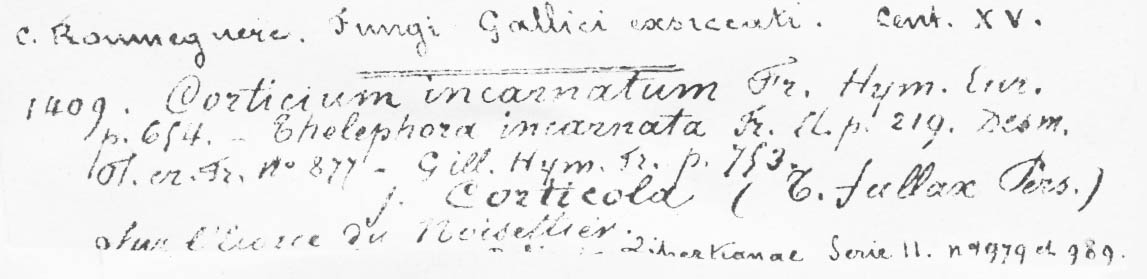 C. Roumeguere. Fungi Gallici exsiccati. Cent. XV.
1409. Corticium incarnatum Fr. Hym. Eur.
p. 654. - Thelephora incarnata Fr. El. p. 219. Desm.
Pl. cr. Fr. No 877 - Gill. Hym. Fr. p. 753.
f. Corticola (T. fallax Pers.)
Sur l'écorce du Noisettier.
Libertianae Serie II. nos 979 et 989.